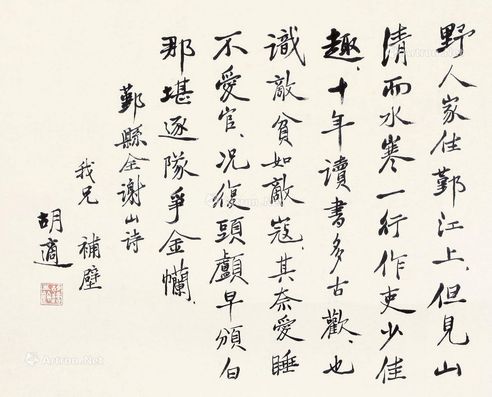 野人家住鄞江上，但見山
清而水寒一行作吏少佳
趣，十年讀書多古歡，也
識敵貧如敵寇，其奈愛睡
不愛官，况復頭顱早頒白
那堪逐隊爭金幱，
鄞縣全謝山詩
我兄 補壁
胡適
Artron.Net